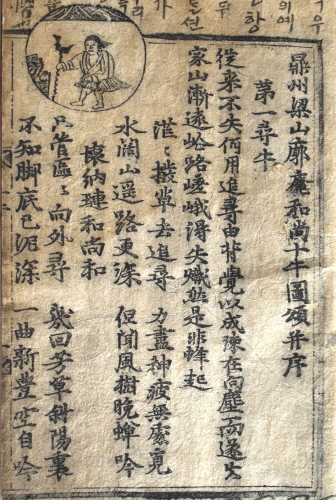 鼎州梁山廓庵和尚十牛圖頌并序
第一尋牛
從来不失何用追尋由背覺以成踈在向塵而遂失
家山漸遠岐路嵯峨得失熾然是非蜂起
茫〻撥草去追尋
水闊山遥路更深
力盡神疲無處覓
但聞風樹晚蟬吟
壞衲璉和尚和
只管區〻向外尋
不知脚底已泥深
幾回芳草斜陽裏
一曲新豊空自吟